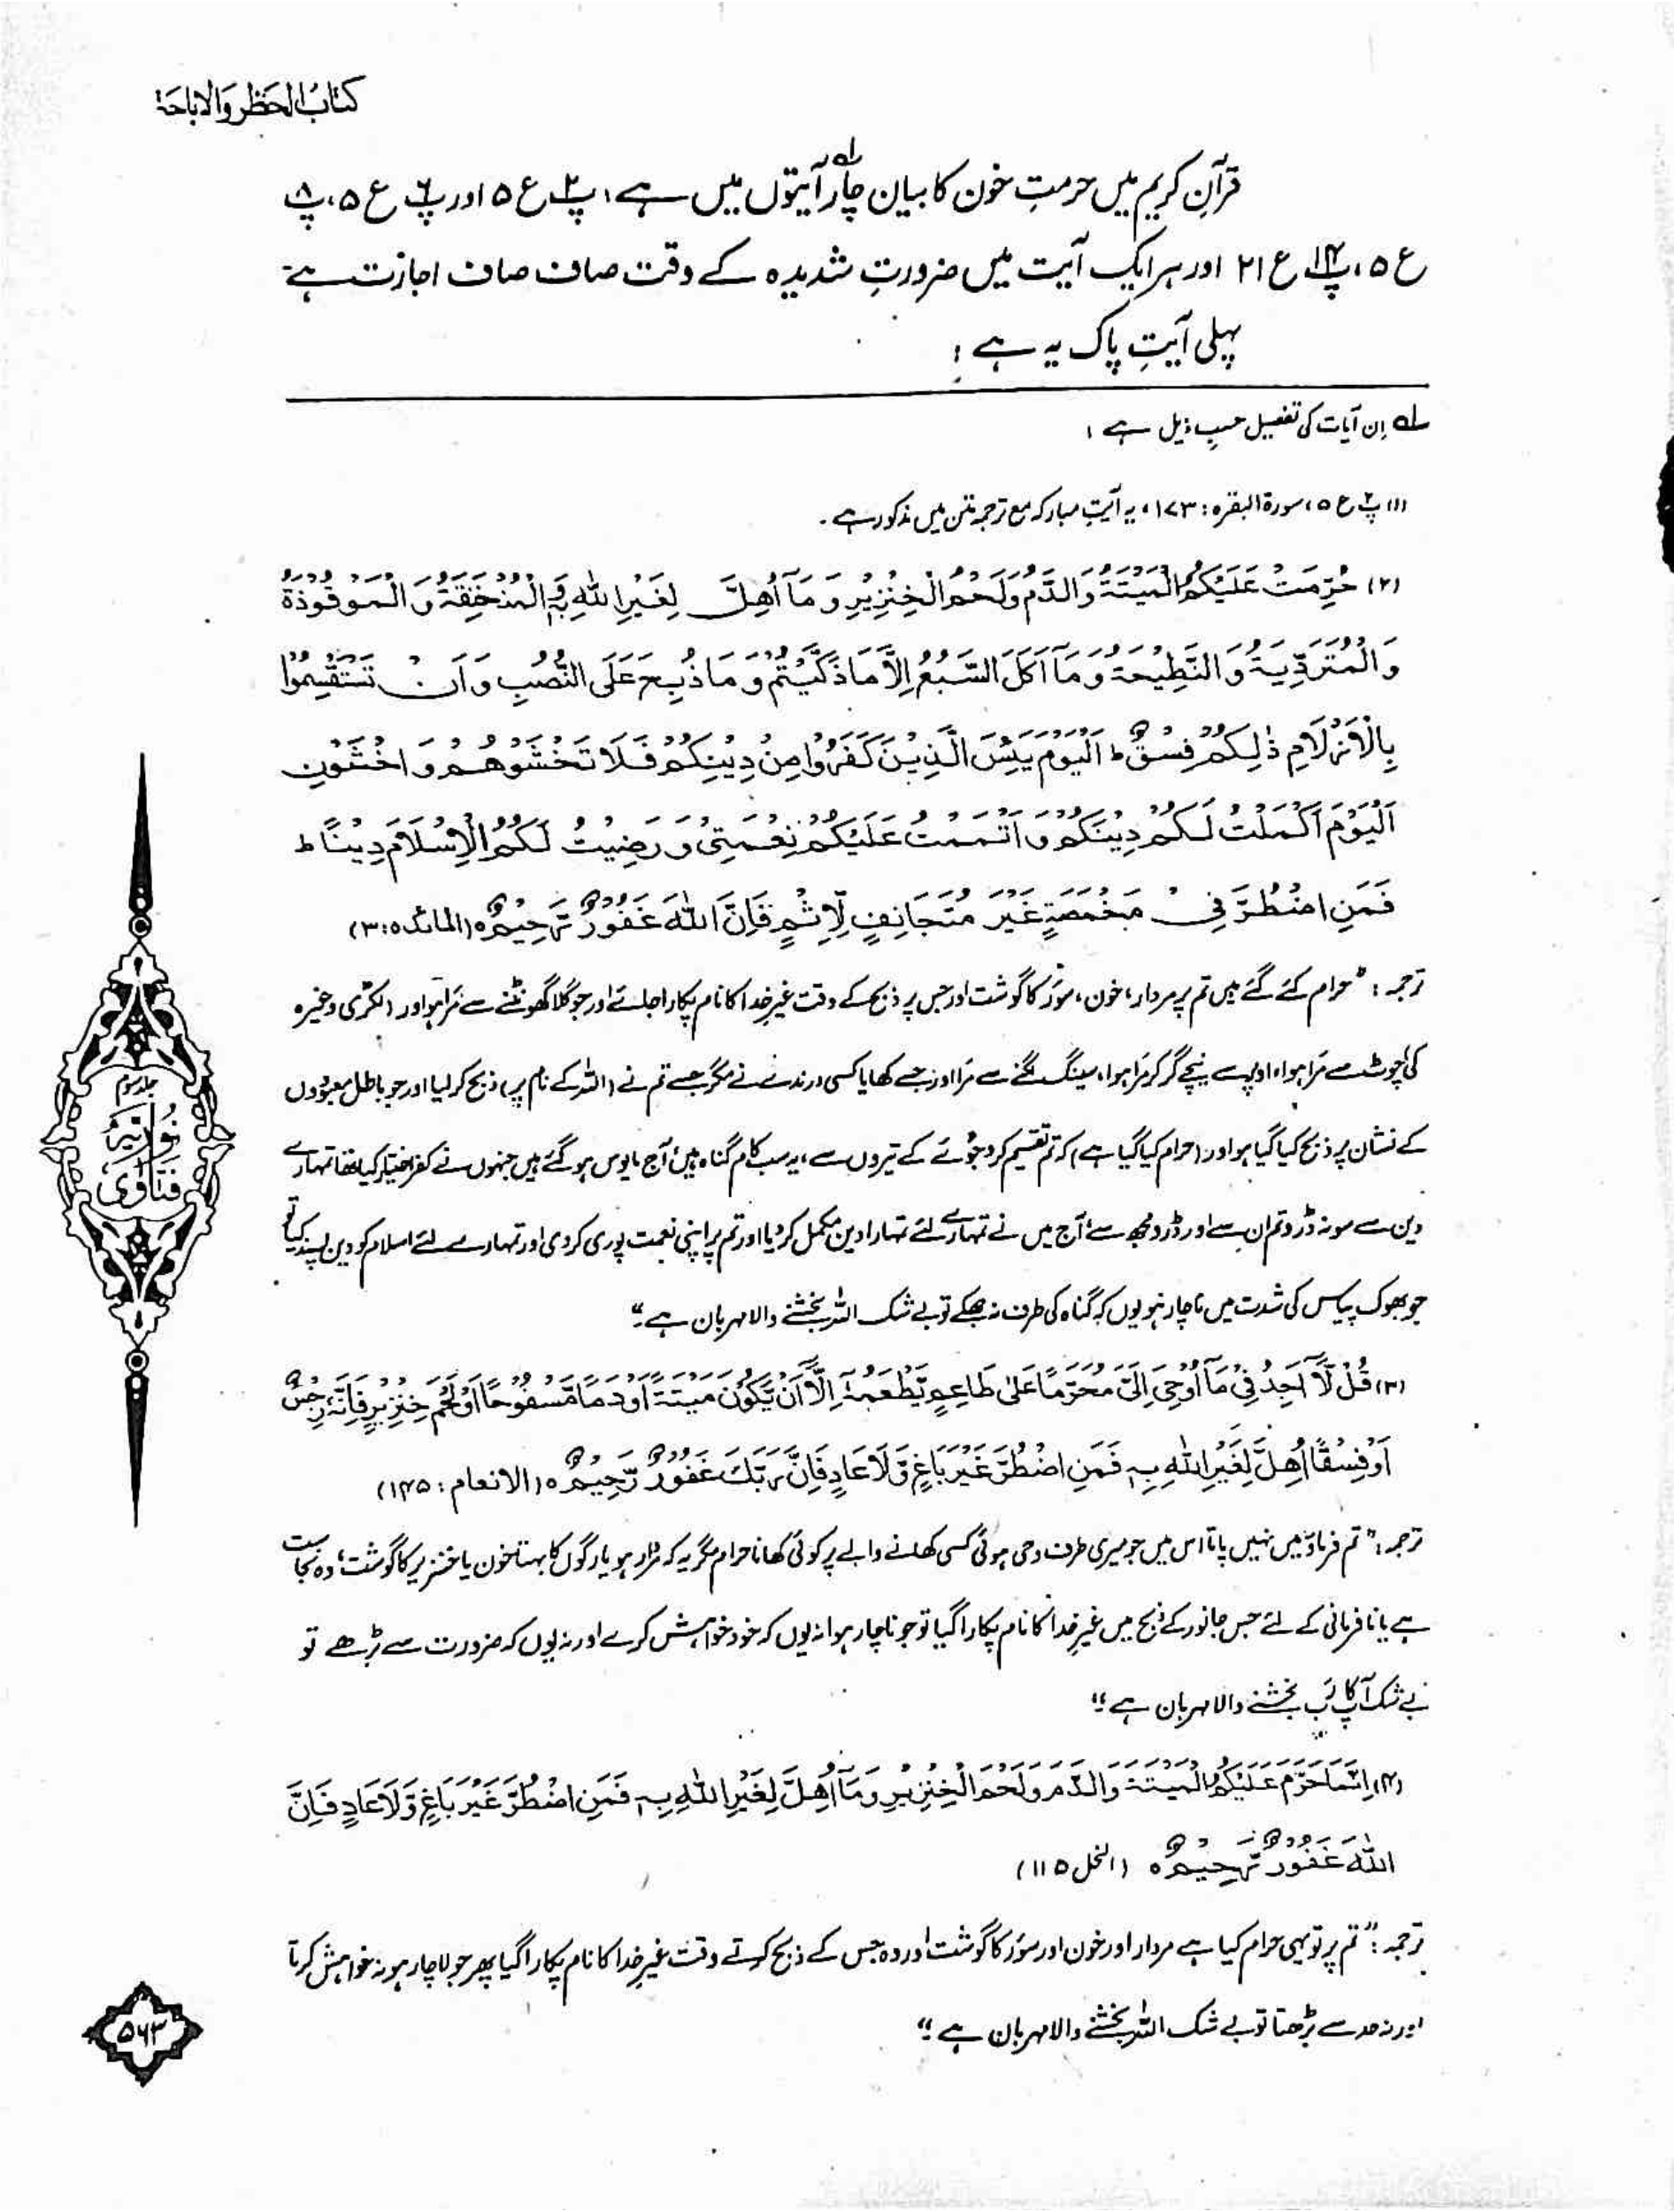 کتابُ الحَظر وَالاباحَة
قرآنِ کریم میں حرمتِ خون کا بیان چار آیتوں میں ہے، پ۲ ع۵ اور پ۶ ع۵، پ۸
ع۵، پ۱۴ ع۲۱ اور ہر ایک آیت میں ضرورتِ شدیدہ کے وقت صاف صاف اجازت ہے۔
پہلی آیتِ پاک یہ ہے:
لہ اِن آیات کی تفصیل حسبِ ذیل ہے:
(۱) پ۲ ع۵، سورۃ البقرہ: ۱۷۳، یہ آیتِ مبارکہ مع ترجمہ متن میں مذکور ہے۔
(۲) حُرِّمَتْ عَلَيْكُمُ الْمَيْتَةُ وَالدَّمُ وَلَحْمُ الْخِنْزِيْرِ وَمَآ اُهِلَّ لِغَيْرِ اللّٰهِ بِهٖ وَالْمُنْخَنِقَةُ وَالْمَوْقُوْذَةُ
وَالْمُتَرَدِّيَةُ وَالنَّطِيْحَةُ وَمَآ اَكَلَ السَّبُعُ اِلَّا مَا ذَكَّيْتُمْ وَمَا ذُبِحَ عَلَى النُّصُبِ وَاَنْ تَسْتَقْسِمُوْا
بِالْاَزْلَامِ ذٰلِكُمْ فِسْقٌ ط اَلْيَوْمَ يَئِسَ الَّذِيْنَ كَفَرُوْا مِنْ دِيْنِكُمْ فَلَا تَخْشَوْهُمْ وَاخْشَوْنِ
اَلْيَوْمَ اَكْمَلْتُ لَكُمْ دِيْنَكُمْ وَاَتْمَمْتُ عَلَيْكُمْ نِعْمَتِيْ وَرَضِيْتُ لَكُمُ الْاِسْلَامَ دِيْنًا ط
فَمَنِ اضْطُرَّ فِيْ مَخْمَصَةٍ غَيْرَ مُتَجَانِفٍ لِّاِثْمٍ فَاِنَّ اللّٰهَ غَفُوْرٌ رَّحِيْمٌ ہ (المائدہ ۳:۵)
ترجمہ: "حرام کئے گئے ہیں تم پر مردار، خون، سؤر کا گوشت اور جس پر ذبح کے وقت غیرِ خدا کا نام پکارا جائے اور جو گلا گھونٹنے سے مَرا ہو اور (لکڑی وغیرہ
کی) چوٹ سے مَرا ہوا، اوپر سے نیچے گر کر مَرا ہوا، سینگ لگنے سے مَرا اور جسے کھایا کسی درندے نے مگر جسے تم نے (اللہ کے نام پر) ذبح کر لیا اور جو باطل معبودوں
کے نشان پر ذبح کیا گیا ہو اور (حرام کیا گیا ہے) کہ تم تقسیم کرو جُوئے کے تیروں سے، یہ سب کام گناہ ہیں، آج مایوس ہو گئے ہیں جنہوں نے کفر اختیار کیا تھا تمہارے
دین سے سو نہ ڈرو تم ان سے اور ڈرو مجھ سے، آج میں نے تمہارے لئے تمہارا دین مکمل کر دیا اور تم پر اپنی نعمت پوری کر دی اور تمہارے لئے اسلام کو دین پسند کیا تو
جو بھوک پیاس کی شدت میں ناچار ہو یوں کہ گناہ کی طرف نہ جھکے تو بے شک اللہ بخشنے والا مہربان ہے"۔
(۳) قُلْ لَّآ اَجِدُ فِيْ مَآ اُوْحِيَ اِلَيَّ مُحَرَّمًا عَلٰى طَاعِمٍ يَّطْعَمُهٗٓ اِلَّآ اَنْ يَّكُوْنَ مَيْتَةً اَوْ دَمًا مَّسْفُوْحًا اَوْ لَحْمَ خِنْزِيْرٍ فَاِنَّهٗ رِجْسٌ
اَوْ فِسْقًا اُهِلَّ لِغَيْرِ اللّٰهِ بِهٖ فَمَنِ اضْطُرَّ غَيْرَ بَاغٍ وَّلَا عَادٍ فَاِنَّ رَبَّكَ غَفُوْرٌ رَّحِيْمٌ ہ (الانعام: ۱۴۵)
ترجمہ: "تم فرماؤ میں نہیں پاتا اس میں جو میری طرف وحی ہوئی کسی کھانے والے پر کوئی کھانا حرام مگر یہ کہ مُردار ہو یا رگوں کا بہتا خون یا خنزیر کا گوشت، وہ نجاست
ہے یا نافرمانی کے لئے جس جانور کے ذبح میں غیرِ خدا کا نام پکارا گیا تو جو ناچار ہوا نہ یوں کہ خود خواہش کرے اور نہ یوں کہ ضرورت سے بڑھے تو
بے شک آپ کا رَب بخشنے والا مہربان ہے"۔
(۴) اِنَّمَا حَرَّمَ عَلَيْكُمُ الْمَيْتَةَ وَالدَّمَ وَلَحْمَ الْخِنْزِيْرِ وَمَآ اُهِلَّ لِغَيْرِ اللّٰهِ بِهٖ فَمَنِ اضْطُرَّ غَيْرَ بَاغٍ وَّلَا عَادٍ فَاِنَّ
اللّٰهَ غَفُوْرٌ رَّحِيْمٌ ہ (النحل ۱۱۵)
ترجمہ: "تم پر تو یہی حرام کیا ہے مردار اور خون اور سؤر کا گوشت اور وہ جس کے ذبح کرتے وقت غیرِ خدا کا نام پکارا گیا پھر جو لاچار ہو نہ خواہش کرتا
اور نہ حد سے بڑھتا تو بے شک اللہ بخشنے والا مہربان ہے"۔
جلد سوم
نُورِیَّہ
فتاوٰی
۵۶۳